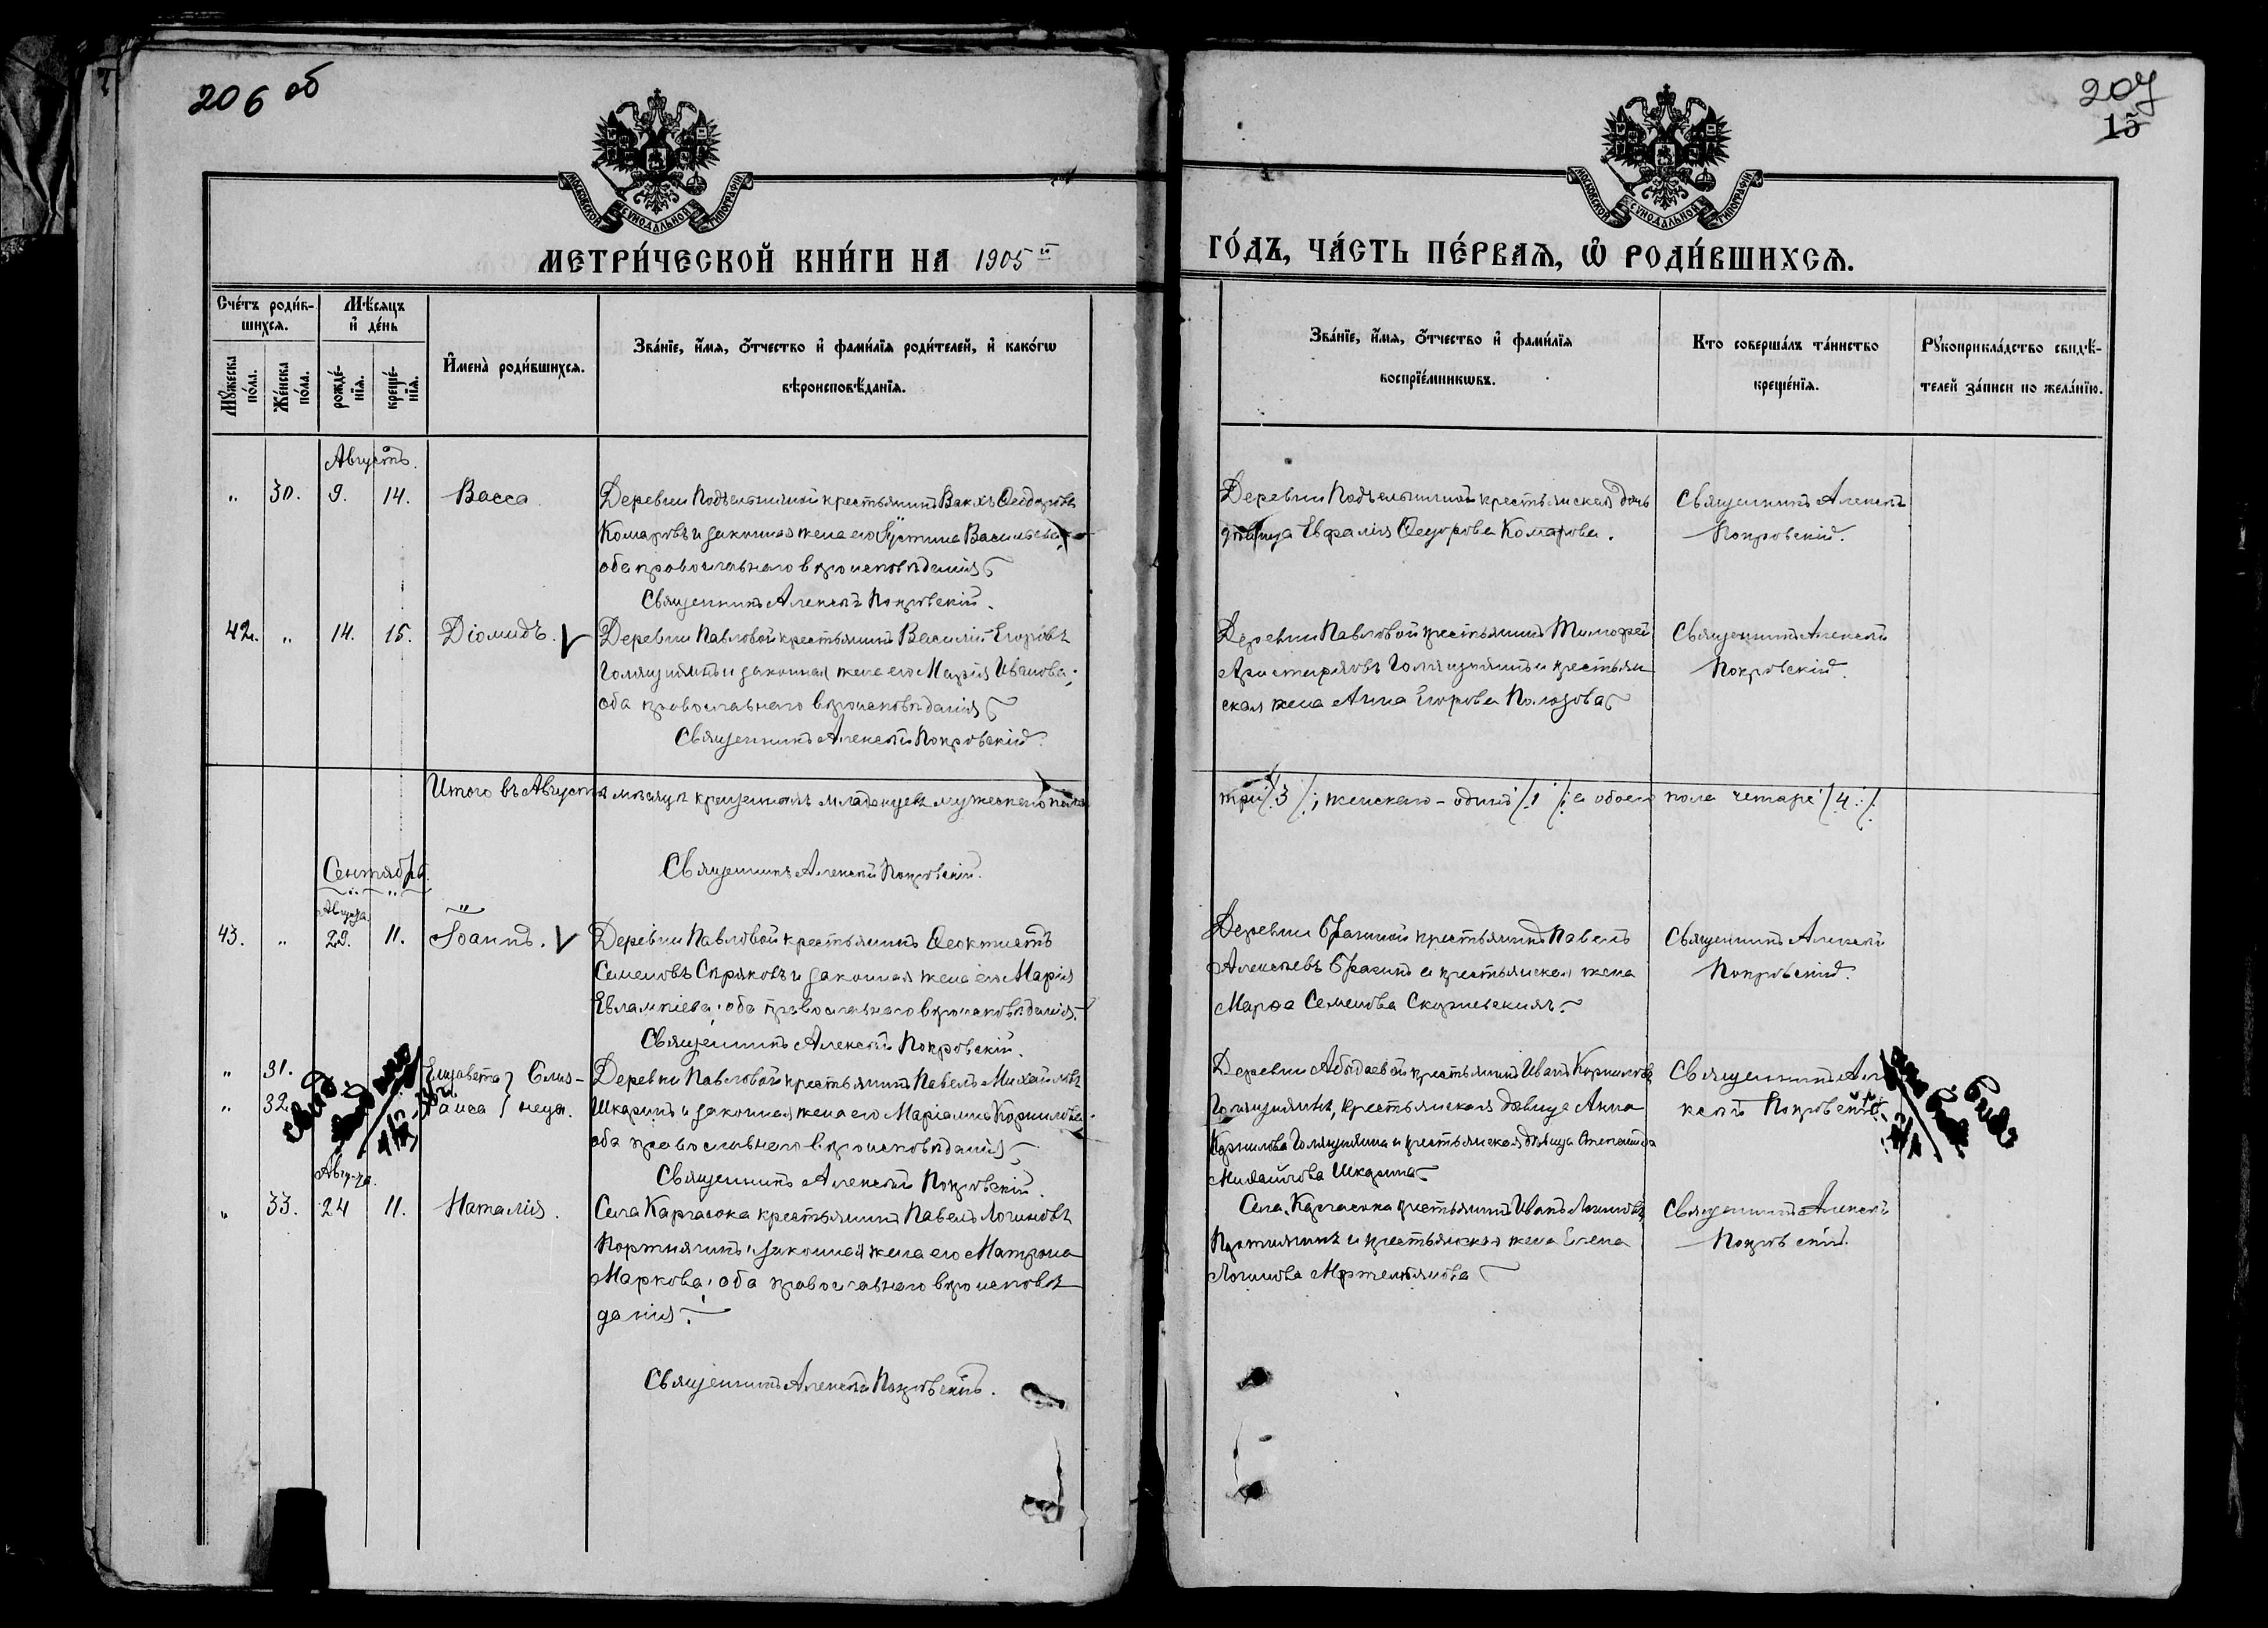 206 об
207
15
МОСКОВСКОЙ СѴНОДАЛЬНОЙ ТИПОГРАФІИ
МОСКОВСКОЙ СѴНОДАЛЬНОЙ ТИПОГРАФІИ
МЕТРИ́ЧЕСКОЙ КНИ́ГИ НА 1905 й
ГО́ДЪ, ЧА́СТЬ ПЕ́РВАѦ, Ѿ РОДИ́ВШИХСѦ.
Сче́тъ роди́в-
шихсѧ.
Мѣ́сѧцъ
и҆ де́нь
Мꙋ́жеска по́ла.
Же́нска по́ла.
рожде́-
нїѧ.
креще́-
нїѧ.
И҆мена̀ роди́вшихсѧ.
Зва́нїе, и҆́мѧ, ѻ҆́тчество и҆ фами́лїѧ роди́телей, и҆ како́гѡ
вѣроисповѣ́данїѧ.
Зва́нїе, и҆́мѧ, ѻ҆́тчество и҆ фами́лїѧ
воспрїе́мникѡвъ.
Кто соверша́лъ та́инство
креще́нїѧ.
Рꙋкоприкла́дство свидѣ́-
телей за́писи по жела́нїю.
Августъ.
" 30. 9. 14. Васса
Деревни Подъельничной крестьянинъ Вакхъ Ѳеодоровъ
Комаровъ и законная жена его Іустина Васильева,
оба православнаго вѣроисповѣданія
Священникъ Алексѣй Покровскій.
Деревни Подъельничной крестьянская дочь
дѣвица Евфалія Ѳедорова Комарова.
Священникъ Алексѣй
Покровскій.
42. " 14. 15. Діомидъ. V
Деревни Павловой крестьянинъ Василій Егоровъ
Голящихинъ и законная жена его Марія Иванова;
оба православнаго вѣроисповѣданія
Священникъ Алексѣй Покровскій.
Деревни Павловой крестьянинъ Тимофей
и крестьян
ская жена Анна Егорова Полозова
Священникъ Алексѣй
Покровскій.
Итого въ Августѣ мѣсяцѣ крещенныхъ младенцевъ мужескаго пола
три /3/; женскаго - одинъ /1/; а обоего пола четыре /4/.
Священникъ Алексѣй Покровскій.
Сентябрь.
Августа.
43. " 29. 11. Іоаннъ. V
Деревни Павловой крестьянинъ Ѳеоктистъ
Семеновъ Сѣряковъ и законная жена его Марія
Евлампіева; оба православнаго вѣроисповѣданія.
Священникъ Алексѣй Покровскій.
Деревни крестьянинъ Павелъ
Алексѣевъ и крестьянская жена
Марѳа Семенова
Священникъ Алексѣй
Покровскій.
" 31. Елизавета } Близ-
" 32. Раиса } нецы.
Деревни Павловой крестьянинъ Павелъ Михайловъ
Шкаринъ и законная жена его Маріамна Корнилова
оба православнаго вѣроисповѣданія
Священникъ Алексѣй Покровскій.
Деревни крестьянинъ Иванъ Корниловъ
крестьянская дѣвица Анна
Корнилова и крестьянская дѣвица Степанида
Михайлова Шкарина
Священникъ Але
ксѣй Покровскій.
Авгу-та.
" 33. 24 11. Наталія.
Села Каргасока крестьянинъ Павелъ Логиновъ
Портнягинъ и законная жена его Матрона
Маркова; оба православнаго вѣроисповѣ
данія.
Священникъ Алексѣй Покровскій.
Села Каргасока крестьянинъ Иванъ Логиновъ
Портнягинъ и крестьянская жена Елена
Логинова
Священникъ Алексѣй
Покровскій.